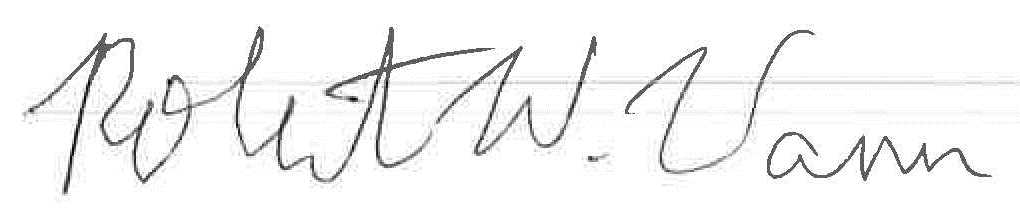 Robert W. Vann